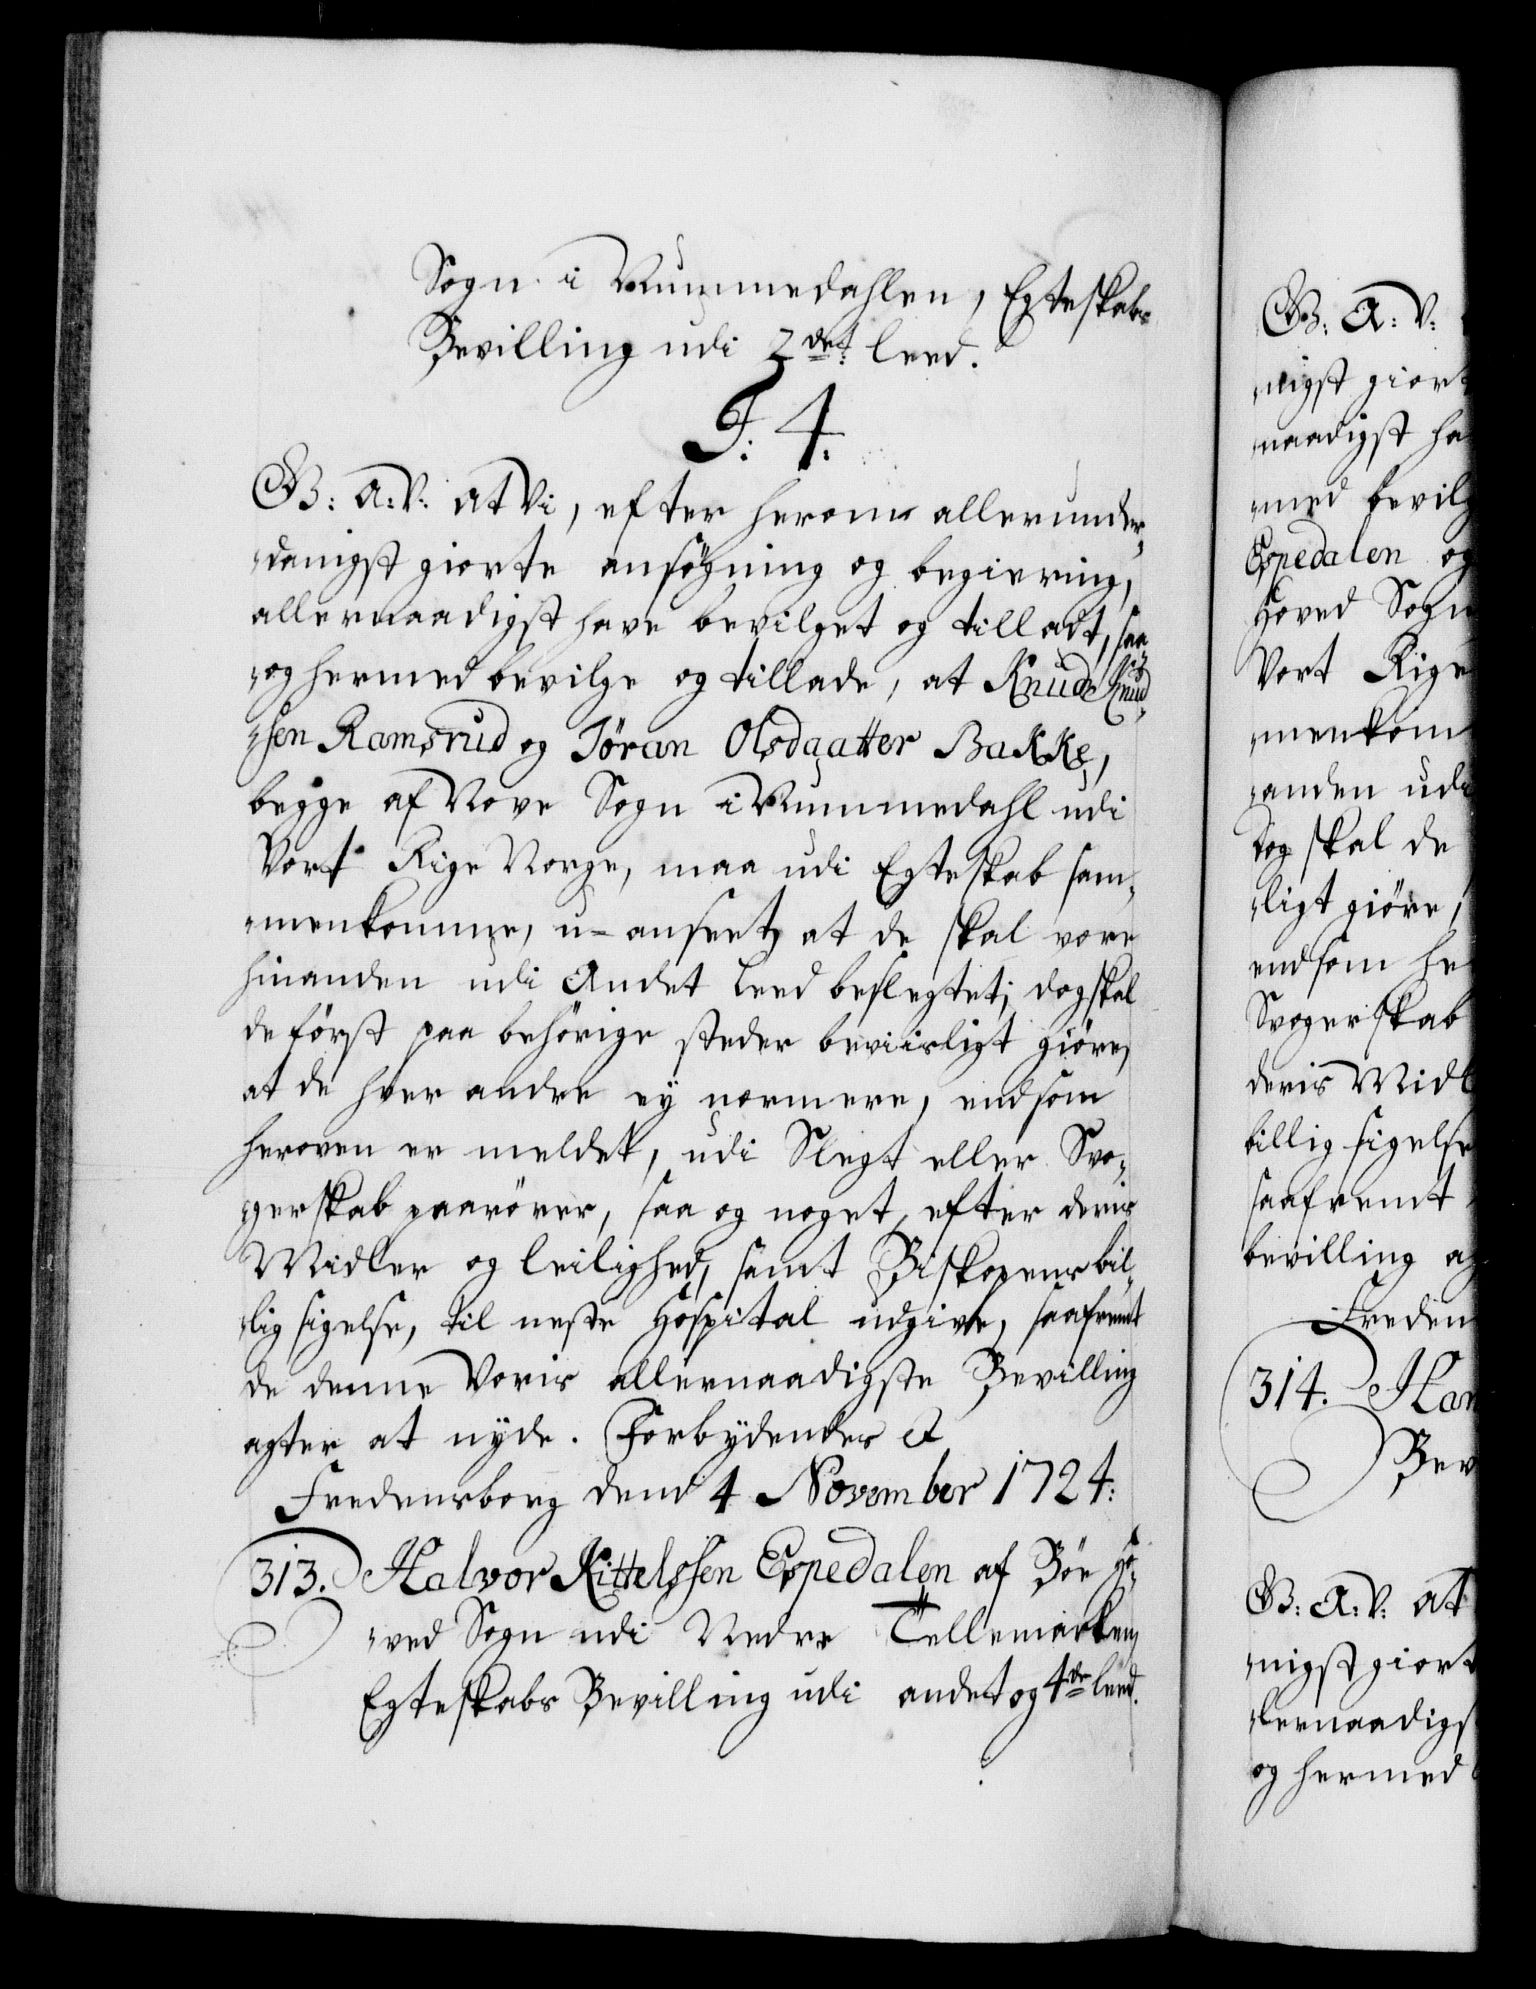 Sogn i Nummedahlen, Egteskabs
Bevilling udi 2det: Leed.
F. 4.
G: A: V: at Vi, efter herom allerunder¬
¬danigst giorte ansøgning og begiering,
allernaadigst have bevilget og tilladt, saa
¬og hermed bevilge og tillade, at Knud Knud¬
¬sen Ramsrud og Jöran Olsdaatter Bakke,
begge af Nore Sogn i Nummedahl udi
Vort Rige Norge, maa udi Egteskab sam¬
¬menkomme, u-anseet, at de skal være
hinanden udi Andet Leed beslegtet; dog skal
de först paa behörige steder beviisligt giöre,
at de hver andre ey nærmere, end som
heroven er meldet, udi Slegt eller Svo¬
gerskab paarörer, saa og noget, efter deris
Midler og leilighed, samt Biskopens bil¬
¬lig sigelse, til neste Hospital udgive, saafremt
de denne Voris allernaadigste Bevilling
agter at nyde. Forbydendes &
Fredensborg dend 4 November 1724:
313. Halvor Kittelssen Espedalen af Böe Ho¬
¬ved Sogn udi Nedre Tellemarken,
Egteskabs Bevilling udi andet og 4de leed.
G: A: V:
¬nigst giort
¬naadigst ha
¬med bevilg
Espedalen og
Hoved Sogn
Vort Rige
¬menkom
¬anden udi
Dog skal de
¬ligt giöre,
end som he
Svogerskab
deris Midl
billig sigelse
saafremt
bevilling ag
Freden
314. Han
Bev
G: A: V: at
¬nigst giort
¬lernaadigs
og hermed